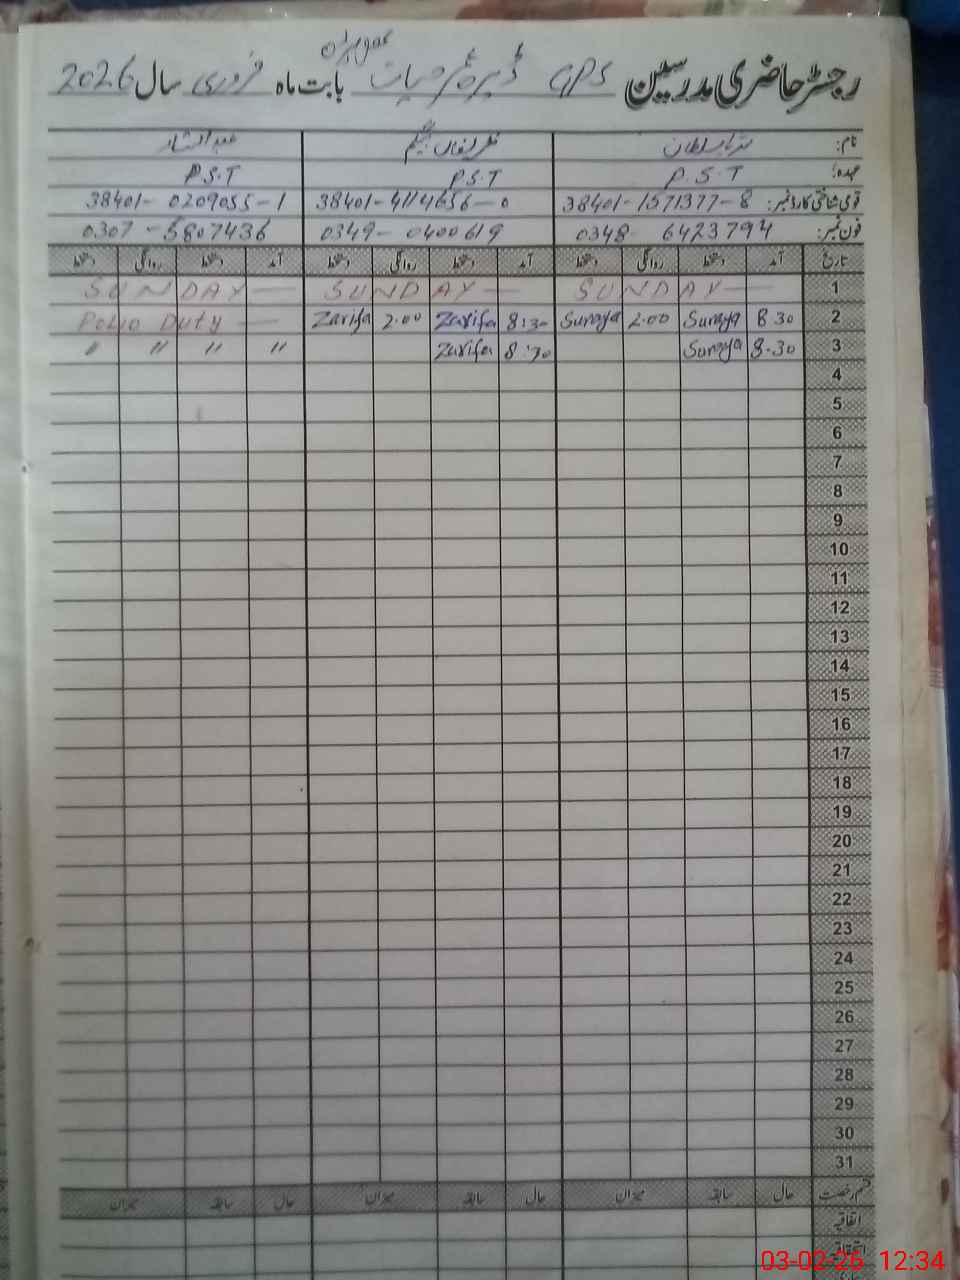 رجسٹر حاضری مدرسین GPS ڈیرہ عمر حیات بابت ماہ فروری سال 2026
نام: ثریا سلطان ظریفاں بیگم عبدالستار
عہدہ: P.S.T P.S.T P.S.T
قومی شناختی کارڈ نمبر: 38401-1571377-8 38401-4114656-0 38401-0209055-1
فون نمبر: 0348-6423794 0349-0400619 0307-5807436
تاریخ آمد دستخط روانگی دستخط آمد دستخط روانگی دستخط آمد دستخط روانگی دستخط
1 SUNDAY SUNDAY SUNDAY
2 8 30 Suraya 2.00 Suraya 8:30 Zarifa 2.00 Zarifa Polio Duty
3 8.30 Suraya 8:30 Zarifa " " " "
4
5
6
7
8
9
10
11
12
13
14
15
16
17
18
19
20
21
22
23
24
25
26
27
28
29
30
31
قسم رخصت حال سابقہ میزان حال سابقہ میزان حال سابقہ میزان
اتفاقیہ
استحقاقیہ
03-02-26 12:34